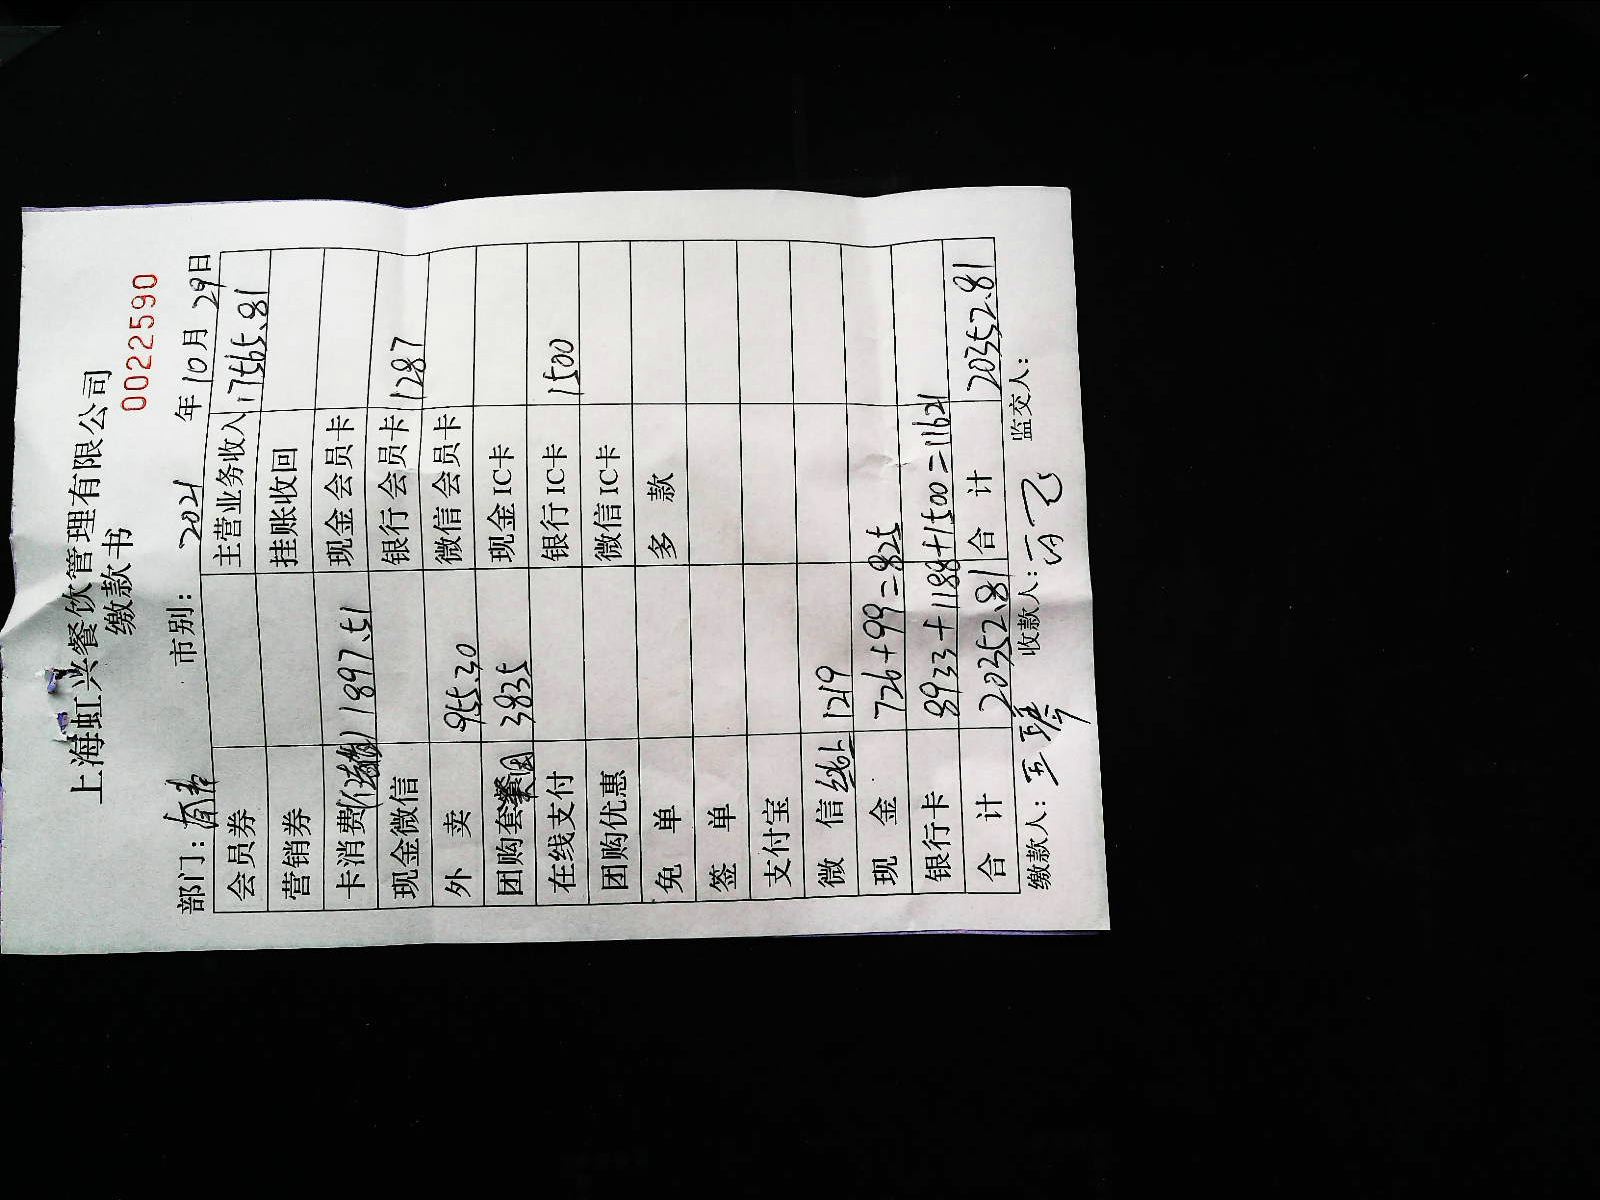 上海虹兴餐饮管理有限公司
缴款书
0022590
部门： 市别： 2021 年 10 月 29 日
会员券 主营业务收入 17565.81
营销券 挂账收回
卡消费(储值) 1897.51 现金会员卡
现金微信 银行会员卡 1287
外 卖 955.30 微信会员卡
团购套餐 3835 现金IC卡
在线支付 银行IC卡 1500
团购优惠 微信IC卡
免 单 多 款
签 单
支付宝
微 信 线上 1219
现 金 726+99=825
银行卡 8933+1188+1500=11621
合 计 20352.81 合 计 20352.81
缴款人： 收款人： 监交人：